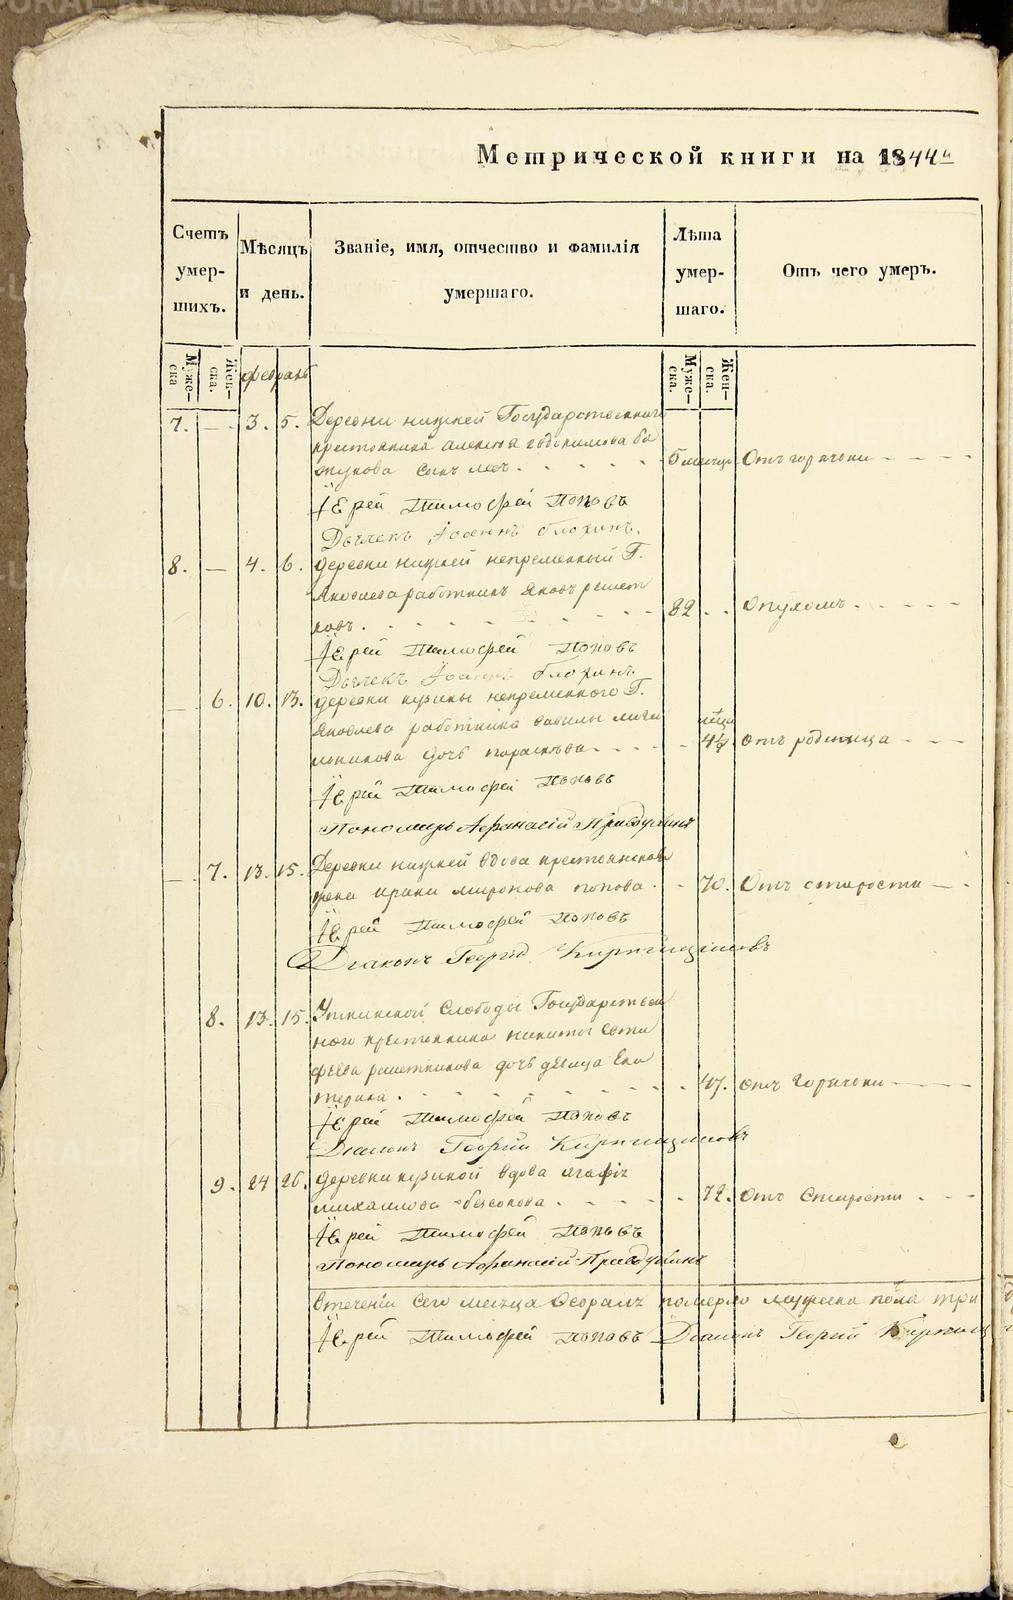 METRIKI.GASO-URAL.RU
Метрической книги на 1844й
Счетъ умер- шихъ.
Мѣсяцъ и день.
Званіе, имя, отчество и фамилія умершаго.
Лѣта умер- шаго.
Отъ чего умеръ.
Муже- ска
Жен- ска.
февраль
Муже- ска.
Жен- ска.
7. — 3. 5. Деревни нижней Государственнаго
крестьянина алексея евдокимова ба
жукова сынъ 5 месяцъ Отъ горячки
Іерей Тимофей Поповъ
Дьячекъ Іоаннъ блохинъ.
8. — 4. 6. деревни нижней непременный Г.
Яковлева работникъ Яковъ решет
ковъ. 82 .. опухомъ
Іерей Тимофей Поповъ
Дьячекъ Іоаннъ блохинъ
— 6. 10. 13. деревни кузины непременнаго Г.
Яковлева работника вавилы
дочь параскева Отъ родимца
Іерей Тимофей Поповъ
Пономарь Афанасій Правдухинъ
— 7. 13. 15. Деревни нижней вдова крестьянская
жена ирина миронова попова. 70. Отъ старости
Іерей Тимофей Поповъ
Діаконъ Георгій Кирпищиковъ
8. 13. 15. Уткинской Слободы Государствен
наго крестьянина никиты евти
феева решетникова дочь девица Ека
терина. 47. отъ Горячки
Іерей Тимофей Поповъ
Діаконъ Георгій Кирпищиковъ
9. 24 26. деревни кузиной вдова агафія
михаилова безсонова. 72. отъ Старости
Іерей Тимофей Поповъ
Пономарь Афанасій Правдухинъ
Втеченіи сего месяца Февраля померло мужеска пола три
Іерей Тимофей Поповъ Діаконъ Георгій Кирпищ